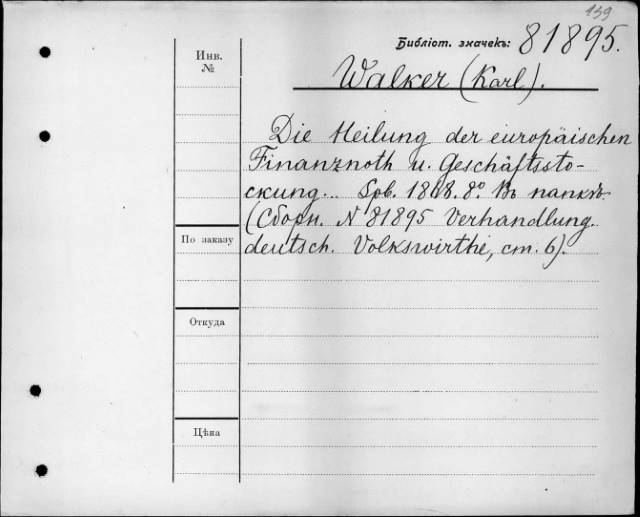 159
Библіот. значекъ: 81895.
Инв.
№
Walker (Karl).
Die Heilung der europäischen
Finanznoth u. Geschäftssto-
ckung... Spb. 1868. 8º. Въ папкѣ.
(Сборн. № 81895 Verhandlung.
По заказу
deutsch. Volkswirthe, ст. 6).
Откуда
Цѣна